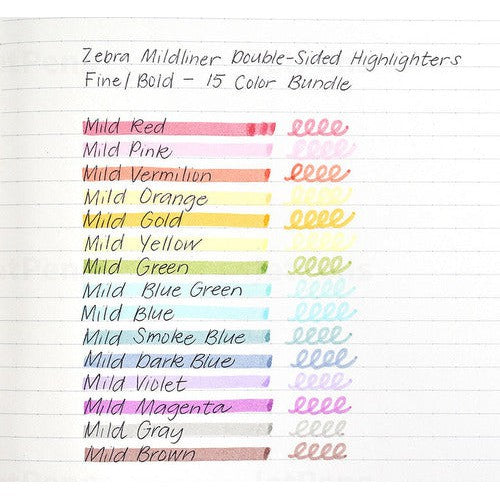 Zebra Mildliner Double-Sided Highlighters
Fine/Bold - 15 Color Bundle
Mild Red
Mild Pink
Mild Vermilion
Mild Orange
Mild Gold
Mild Yellow
Mild Green
Mild Blue Green
Mild Blue
Mild Smoke Blue
Mild Dark Blue
Mild Violet
Mild Magenta
Mild Gray
Mild Brown